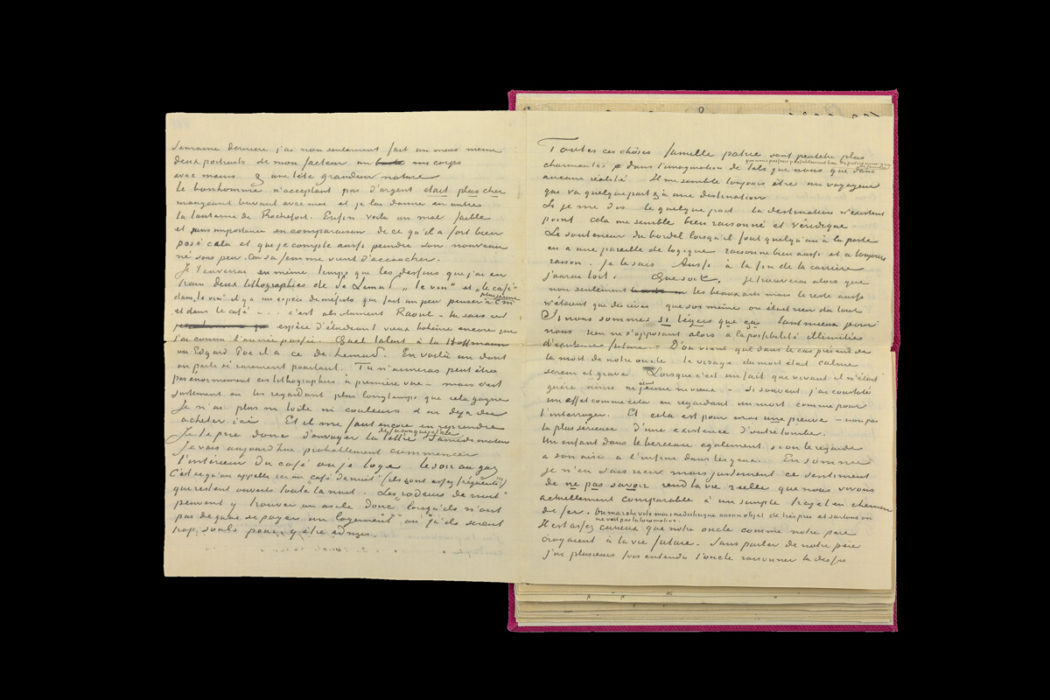 Semaine dernière j'ai non seulement fait un mais même
deux portraits de mon facteur un buste mi corps
avec mains & une tête grandeur nature
le bonhomme n'acceptant pas d'argent etait plus cher
mangeant buvant avec moi et je lui donnai en outre
la lanterne de Rochefort. Enfin voila un mal faible
et sans importance en comparaison de ce qu'il a fort bien
posé et que je compte aussi peindre son nouveau
né sous peu. Car sa femme vient d'accoucher.
Je t'enverrai en même temps que les dessins que j'ai en
train deux lithographies de de Lemud „le vin” et „le café”
dans le vin il y a un espèce de mefisto qui fait un peu penser à C.M. plus jeune
et dans le café - - - c'est absolument Raoul – tu sais ce
espèce d'étudiant vieux bohême encore que
j'ai connu l'année passée. Quel talent à la Hoffmann
ou Edgard Poe il a ce de Lemud. En voilà un dont
on parle si rarement pourtant. Tu n'aimeras peut être
pas enormement ces lithographies à première vue – mais c'est
justement en les regardant plus longtemps que cela gagne
Je n'ai plus ni toile ni couleurs & ai dejà du
acheter ici. Et il me faut encore en reprendre
Je te prie donc d'envoyer la lettre de façon que je l'aie Samedi matin
Je vais aujourd'hui probablement commencer
l'interieur du café où je loge le soir au gaz
C'est ce qu'on appelle ici un café de nuit (ils sont assez fréquents)
qui restent ouverts toute la nuit. Les „rodeurs de nuit”
peuvent y trouver un asile donc lorsqu'ils n'ont
pas de quoi se payer un logement ou qu'ils soient
trop souls pour y être admis.
Toutes ces chôses famille patrie sont peutetre plus
charmantes dans l'imagination de tels que nous qui nous passons passablement bien de patrie ainsi que de famille que dans
aucune réalité. Il me semble toujours être un voyageur
qui va quelque part & à une destination
Si je me dis le quelque part la destination n'existent
point cela me semble bien raisonné et véridique.
Le souteneur du bordel lorsqu'il fout quelqu'un à la porte
en a une pareille de logique raisonne bien aussi et a toujours
raison, je le sais. Aussi à la fin de la carrière
j'aurai tort. Que soit. Je trouverai alors que
non seulement les beaux arts mais le reste aussi
n'étaient que des rêves que soi même on était rien du tout
Si nous sommes si légers que ça tant mieux pour
nous rien ne s'opposant alors à la possibilité illimitée
d'existence future. D'où vient que dans le cas présent de
la mort de notre oncle le visage du mort était calme
serein et grave. Lorsque c'est un fait que vivant il n'était
guère ainsi ni étant jeune ni vieux – Si souvent j'ai constaté
un effet comme cela en regardant un mort comme pour
l'interroger. Et cela est pour moi une preuve – non pas
la plus serieuse d'une existence d'outre tombe.
Un enfant dans le berceau egalement si on le regarde
à son aise a l'infini dans les yeux. En somme
je n'en sais rien mais justement ce sentiment
de ne pas savoir rend la vie réelle que nous vivons
actuellement comparable à un simple trajet en chemin
de fer. On marche vite mais ne distingue aucun objet de très près et surtout on
ne voit pas la locomotive.
Il est assez curieux que notre oncle comme notre père
croyaient à la vie future. Sans parler de notre père
j'ai plusieurs fois entendu l'oncle raisonner la dessus